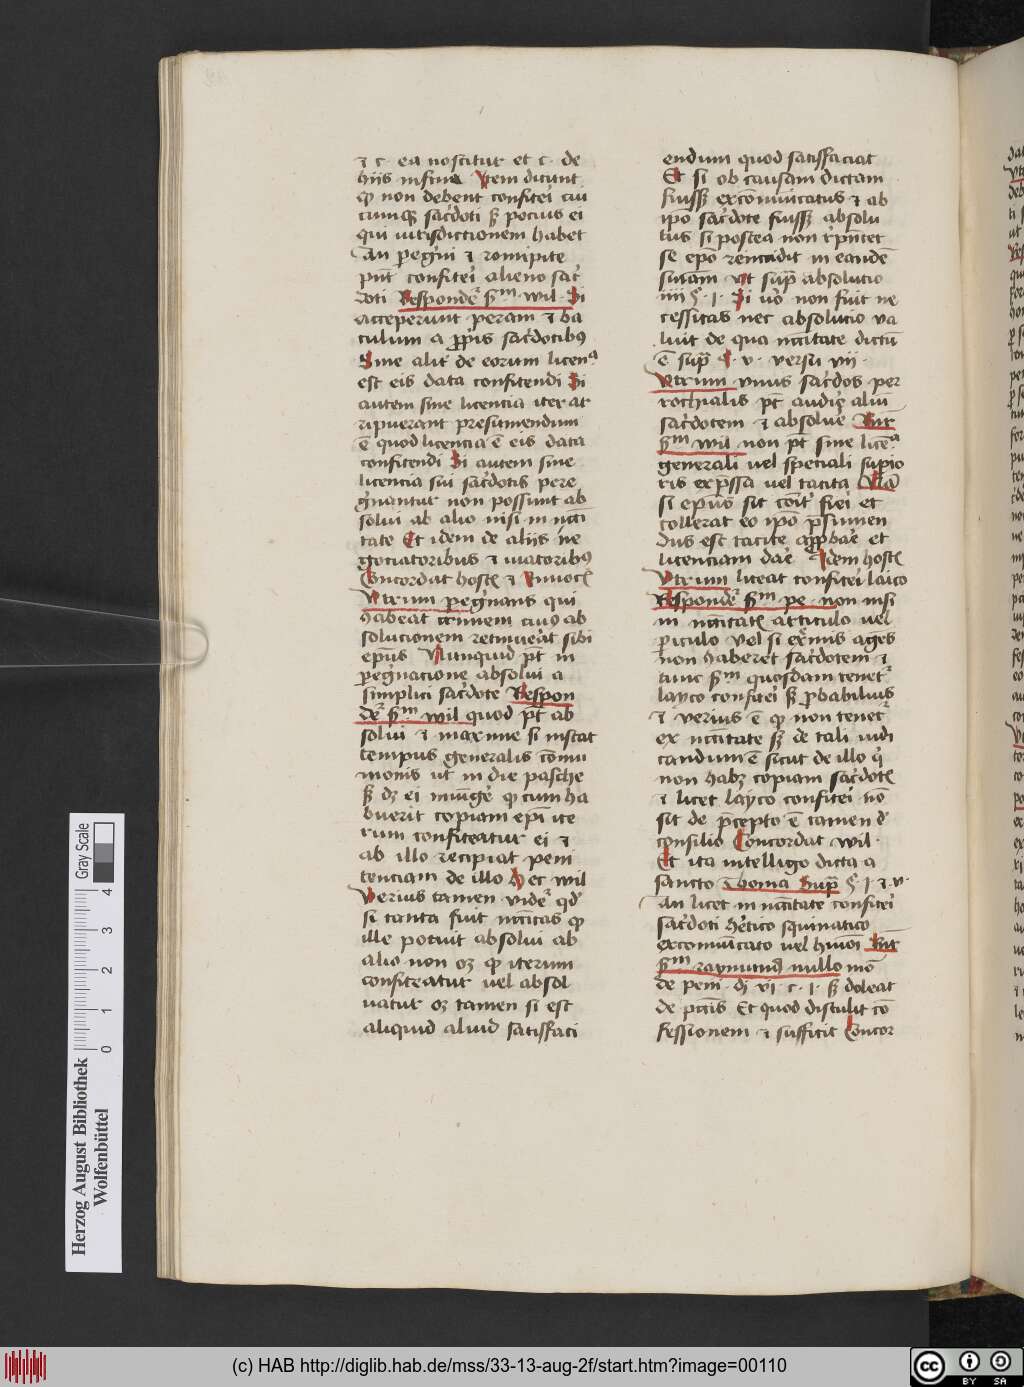 ⁊ c̄ ea noscitur et c̄ · de
hiis infima Item dicunt
ꝙ non debent confiteri cui
cumqꝫ sac̄doti sꝫ pocius ei
qui iurisdictionem habet
An ꝑegͥni ⁊ romipite
pn̄t confiteri alieno sac̄
doti Respondeͬ sͫ · wil · Si
acceperunt peram ⁊ ba
culum a ꝓpͥis sac̄dotibꝰ
Sine alit̄ de eorum licenᵃ
est eis data confitendi Si
autem sine licencia iter ar
ripuerant presumendum
ē quod licencia ē eis data
confitendi Si autem sine
licencia sui sac̄dotis pere
gͥnantur non possunt ab
solui ab alio nisi in nc̄ci
tate Et idem de aliis ne
gociatoribus ⁊ viatoribꝰ
Concordat host̄ ⁊ Innoc̄
Vtrum ꝑegͥnans qui
habeat crimem cuiꝰ ab
solucionem retinuerat sibi
ep̄us Nunquid pt̄ in
ꝑegͥnacione absolui a
simplici sac̄dote Respon
deͬ sͫ wil quod pt̄ ab
solui ⁊ maxime si instat
tempus generalis cōmu
nionis ut in die pasche
sꝫ dꝫ ei iniūgeͬ ꝙ cum ha
buerit copiam ep̄i ite
rum confiteatur ei ⁊
ab illo recipiat peni
tenciam de illo Hec wil
Verius tamen videͬ qd̓
si tanta fuit nc̄citas ꝙ
ille potuit absolui ab
alio non oꝫ ꝙ iterum
confiteatur vel absol
uatur oꝫ tamen si est
aliquid aliud satisfaci
endum quod satisfaciat
Et si ob causam dictam
fuissꝫ excōmunicatus ⁊ ab
ip̄o sac̄dote fuissꝫ absolu
tus si postea non rp̄n̄tet
se ep̄o reincidit in eandē
sn̄iam Vt supͣ absolucio
iiii § · i · Si vͦo non fuit ne
cessitas nec absolucio va
luit de qua nc̄citate dictū
ē supͣ · v · versu vii ·
Vtrum vnus sac̄dos per
rochialis pt̄ audiͬe aliū
sac̄dotem ⁊ absolueͬ Rn̄t
sͫ wil non pt̄ sine licēᵃ
generali vel speciali supͥo
ris expͥssa vel tacita Nā
si ep̄us sit cōit̄ fieri et
tollerat eo ip̄o pͥsumen
dus est tacite approbaͬe et
licenciam daͬe Idem host̄
Vtrum liceat confiteri laico
Respondeͬ sͫ pe · non nisi
in nc̄citatis articulo vel
ꝑiculo vel si exͥmis ages
non haberet sac̄dotem ⁊
tunc sͫ quosdam teneͬ
layco confiteri sꝫ ꝓbabilius
⁊ verius ē ꝙ non teneͬ
ex nc̄citate sꝫ de tali iudi
candum ē sicut de illo qͥ
non habꝫ copiam sac̄dotꝭ
⁊ licet layco confiteri nō
sit de pͥcepto ē tamen d̓
consilio Concordat wil ·
Et ita intelligo dicta a
sancto Thoma Supͣ § · i · ⁊ v ·
An licet in nc̄citate confiteri
sac̄doti hͤtico squinatico
excomūicato vel hm̄oi Rn̄t
sͫ raymundū nullo mō
de peni · dꝫ vi · c · i · sꝫ doleat
de pc̄cis Et quod distulit cō
fessionem ⁊ sufficit Concor
Herzog August Bibliothek
Wolfenbüttel
0 1 2 3 4
Gray Scale
(c) HAB http://diglib.hab.de/mss/33-13-aug-2f/start.htm?image=00110
cc BY SA